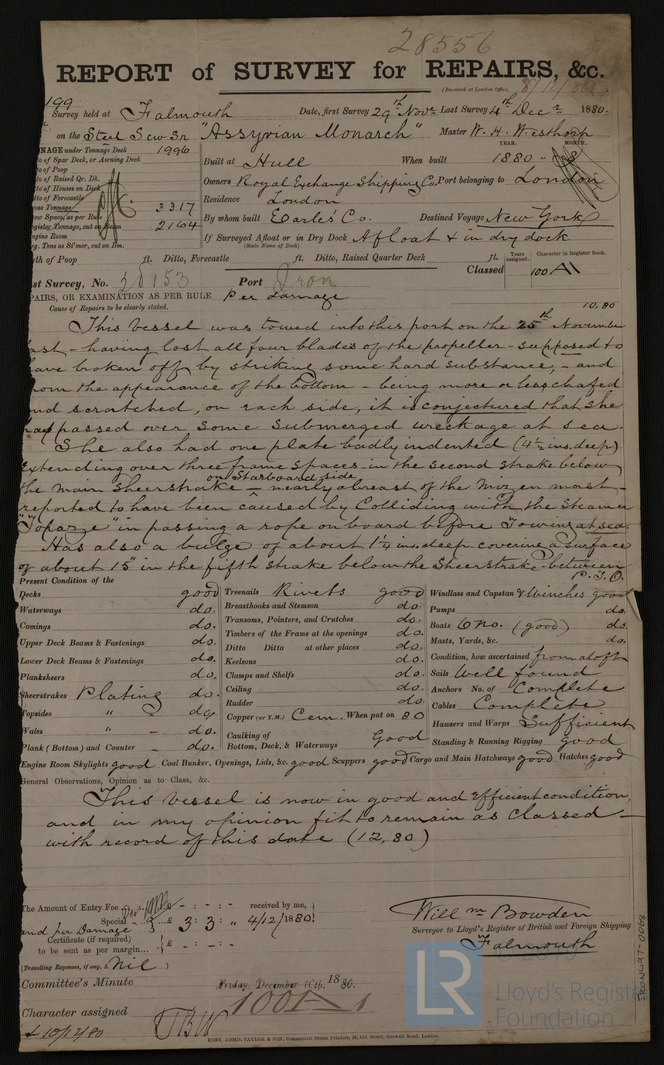 28556
REPORT of SURVEY for REPAIRS, &c.
(Received at London Office,
199
Survey held at Falmouth Date, first Survey 29th Novr Last Survey 4th Decr 1880.
on the Steel Scw Sr "Assyrian Monarch" Master W. H. Westhorp
NAGE under Tonnage Deck 1996
to of Spar Deck, or Awning Deck
to of Poop
to of Raised Qr. Dk.
to of Houses on Deck
to of Forecastle
oss Tonnage 3317
ow Space, as per Rule
egister Tonnage, cut on Beam 2164
ngine Room
g. Tons as St'mer, cut on Bm.
YEAR. MONTH.
Built at Hull When built 1880
Owners Royal Exchange Shipping Co. Port belonging to London
Residence London
By whom built Earles Co. Destined Voyage New York
If Surveyed Afloat or in Dry Dock Afloat & in dry dock
(State Name of Dock)
th of Poop ft. Ditto, Forecastle ft. Ditto, Raised Quarter Deck ft.
Years assigned. Character in Register Book.
Classed 100 A1
st Survey, No. 38153 Port Iron
PAIRS, OR EXAMINATION AS PER RULE Per Damage
Cause of Repairs to be clearly stated. 10.80
This vessel was towed into this port on the 25th November
ast - having lost all four blades of the propeller - supposed to
have broken off by striking some hard substance, - and
rom the appearance of the bottom - being more or less chafed
nd scratched, on each side, it is conjectured that she
had passed over some submerged wreckage at sea.
She also had one plate badly indented (4½ ins. deep)
Extending over three frame spaces in the second strake below
on Starboard side
the main Sheerstrake - nearly abreast of the Mizen mast -
reported to have been ^ caused by Colliding with the Steamer
"Topaze" in passing a rope on board before Towing at sea.
Has also a bulge of about 1¼ in. deep covering a surface
of about 15" in the fifth strake below the Sheerstrake - between
P.T.O.
Present Condition of the
Decks good
Waterways do.
Comings do.
Upper Deck Beams & Fastenings do.
Lower Deck Beams & Fastenings do.
Planksheers do.
Sheerstrakes Plating do.
Topsides " - do.
Wales " - do.
Plank (Bottom) and Counter - do.
Treenails Rivets good
Breasthooks and Stemson do.
Transoms, Pointers, and Crutches do.
Timbers of the Frame at the openings do.
Ditto Ditto at other places do.
Keelsons do.
Clamps and Shelfs do.
Ceiling do.
Rudder do.
Copper (or Y.M.) Cem. When put on 80
Caulking of
Bottom, Deck, & Waterways Good
Windlass and Capstan & Winches good
Pumps do.
Boats 6 no. (good) do.
Masts, Yards, &c. do.
Condition, how ascertained from aloft
Sails Well found
Anchors No. of Complete
Cables Complete
Hawsers and Warps Sufficient
Standing & Running Rigging Good
Engine Room Skylights good Coal Bunker, Openings, Lids, &c. good Scuppers good Cargo and Main Hatchways good Hatches good
General Observations, Opinion as to Class, &c.
This vessel is now in good and efficient condition
and in my opinion fit to remain as classed -
with record of this date (12,80)
The Amount of Entry Fee £ : - : - received by me,
Special £ 3 : 3 : " 4/12/1880.
and per Damage
Certificate (if required) £ - : - : -
to be sent as per margin...
(Travelling Expenses, if any, £ Nil)
Willm Bowden
Surveyor to Lloyd's Register of British and Foreign Shipping
Falmouth
Committee's Minute Friday, December 10th, 1880.
Character assigned 100 A 1
£ 10/12/80
LR
Lloyd's Register
Foundation